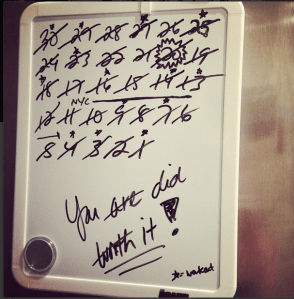 30 29 28 27 26 25
24 23 22 21 20 19
18 17 16 15 14 13
NYC
12 11 10 9 8 7 6
5 4 3 2 1
You are did
worth it!
*= workout